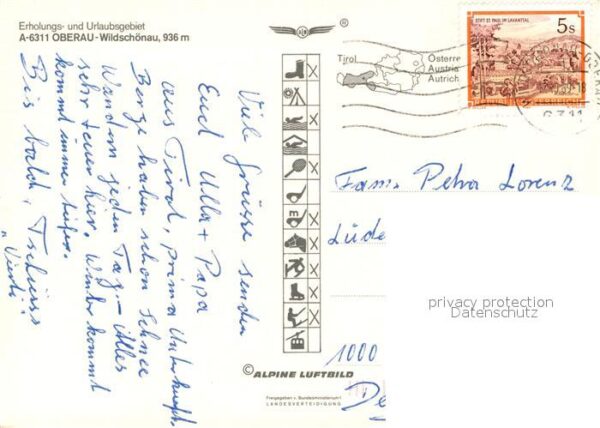 Erholungs- und Urlaubsgebiet
A-6311 OBERAU-Wildschönau, 936 m
Viele Grüsse senden
Euch Ulla + Papa
aus Tirol, prima Unterkunft,
Berge haben schon Schnee
Wandern jeden Tag. – Alles
sehr teuer hier. Winter kommt
kommt immer tiefer.
Bis bald, Tschüss
®
Tirol
Österre
Austria
Autrich
STIFT ST. PAUL IM LAVANTTAL
5s
6311
Fam. Petra Lorenz
Lüde
1000
De
privacy protection
Datenschutz
© ALPINE LUFTBILD
Freigegeben v. Bundesministerium f.
LANDESVERTEIDIGUNG